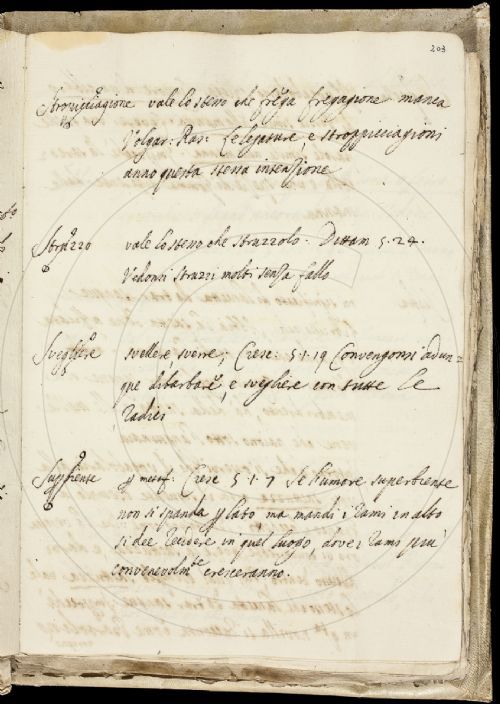 203
Stropicciagione vale lo stesso che frega fregagione manca
Volgar: Ras: Le legature, e stroppicciagioni
anno questa stessa intenzione
Strazzo vale lo stesso che struzzolo. Dittam 5. 24.
Vedonsi strazzi molti senza fallo
Svegliere svellere sverre; Cresc: 5. 1. 19 Convengonsi adun=
que dibarbare, e svegliere con tutte le
radici
Superbiente metaf: Cresc 5. 1. 7 Se l'umore superbiente
non si spanda lato ma mandi i rami in alto
si dee recidere in quel luogo, dove i rami più
convenevolmte cresceranno.